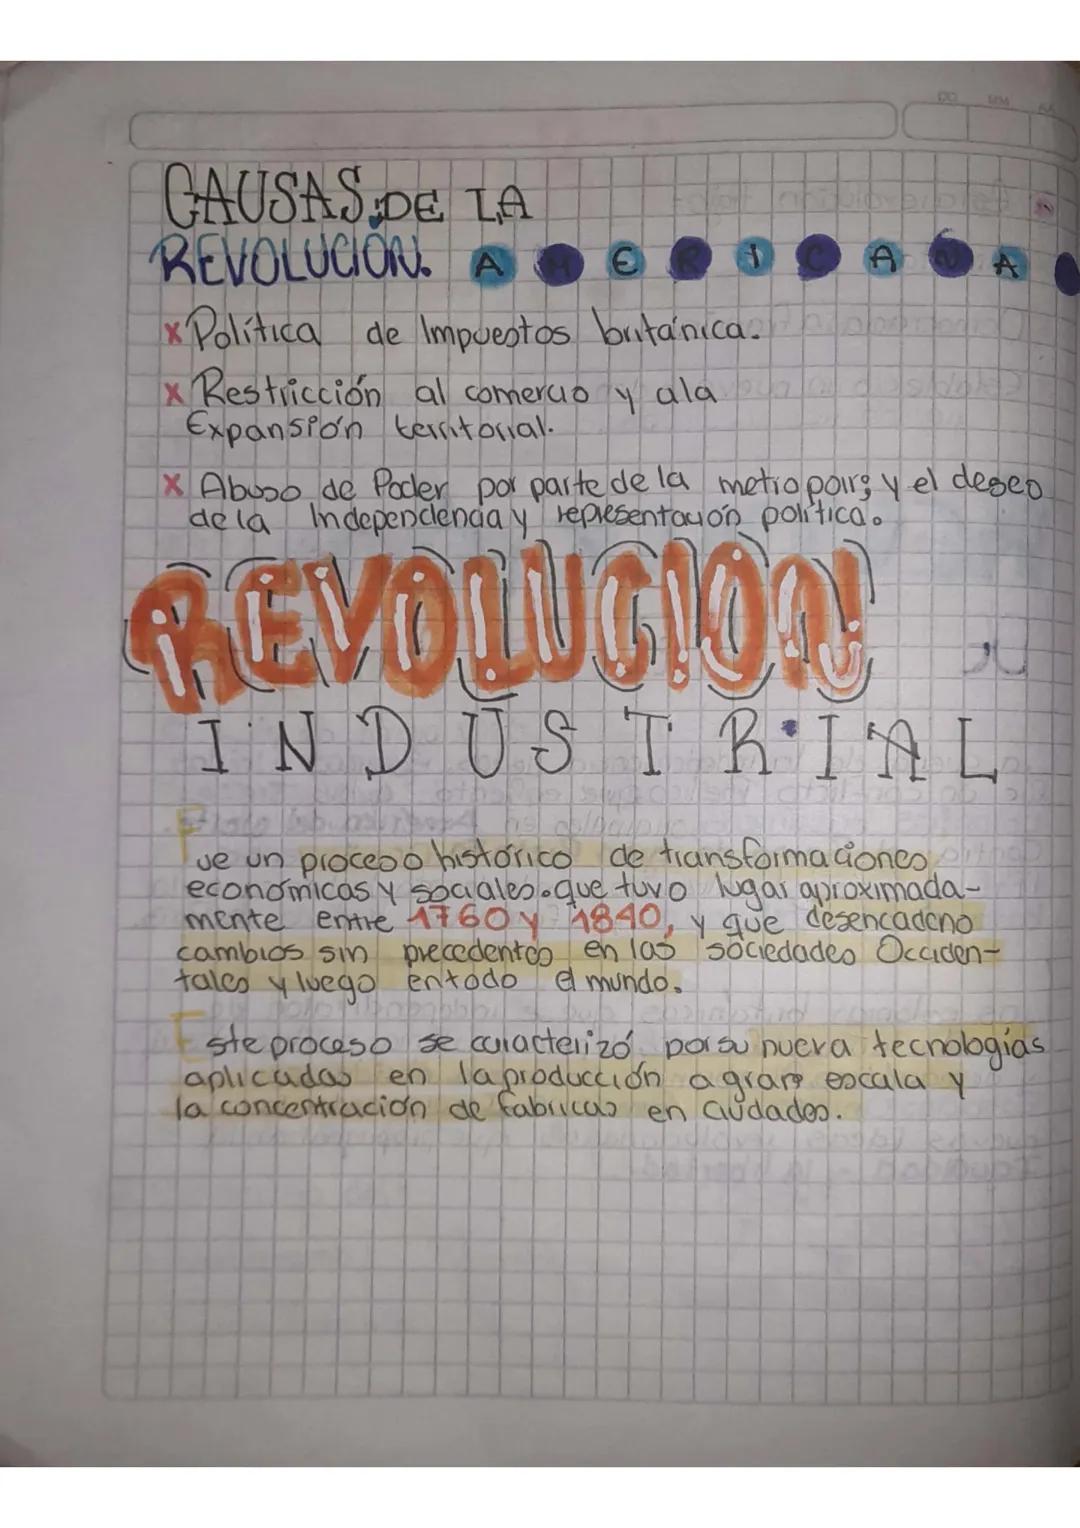 CAUSAS DE LA
REVOLUCIÓN. AMERICANA
x Política de Impuestos británica.
x Restricción al comercio y ala
Expansión territorial.
x Abuso de Poder por parte de la metropolis y el deseo
de la Independencia y representación política.
REVOLUCION
INDUSTRIAL
Fue un proceso histórico de transformaciones
económicas y sociales. que tuvo lugar aproximada-
mente entre 1760 y 1840, y que desencadeno
cambios sin precedentes en las sociedades Occiden-
tales y luego en todo el mundo.
Este proceso se caracterizó por su nueva tecnologías
aplicadas en la producción a gran escala y
la concentración de fabricas en ciudades.